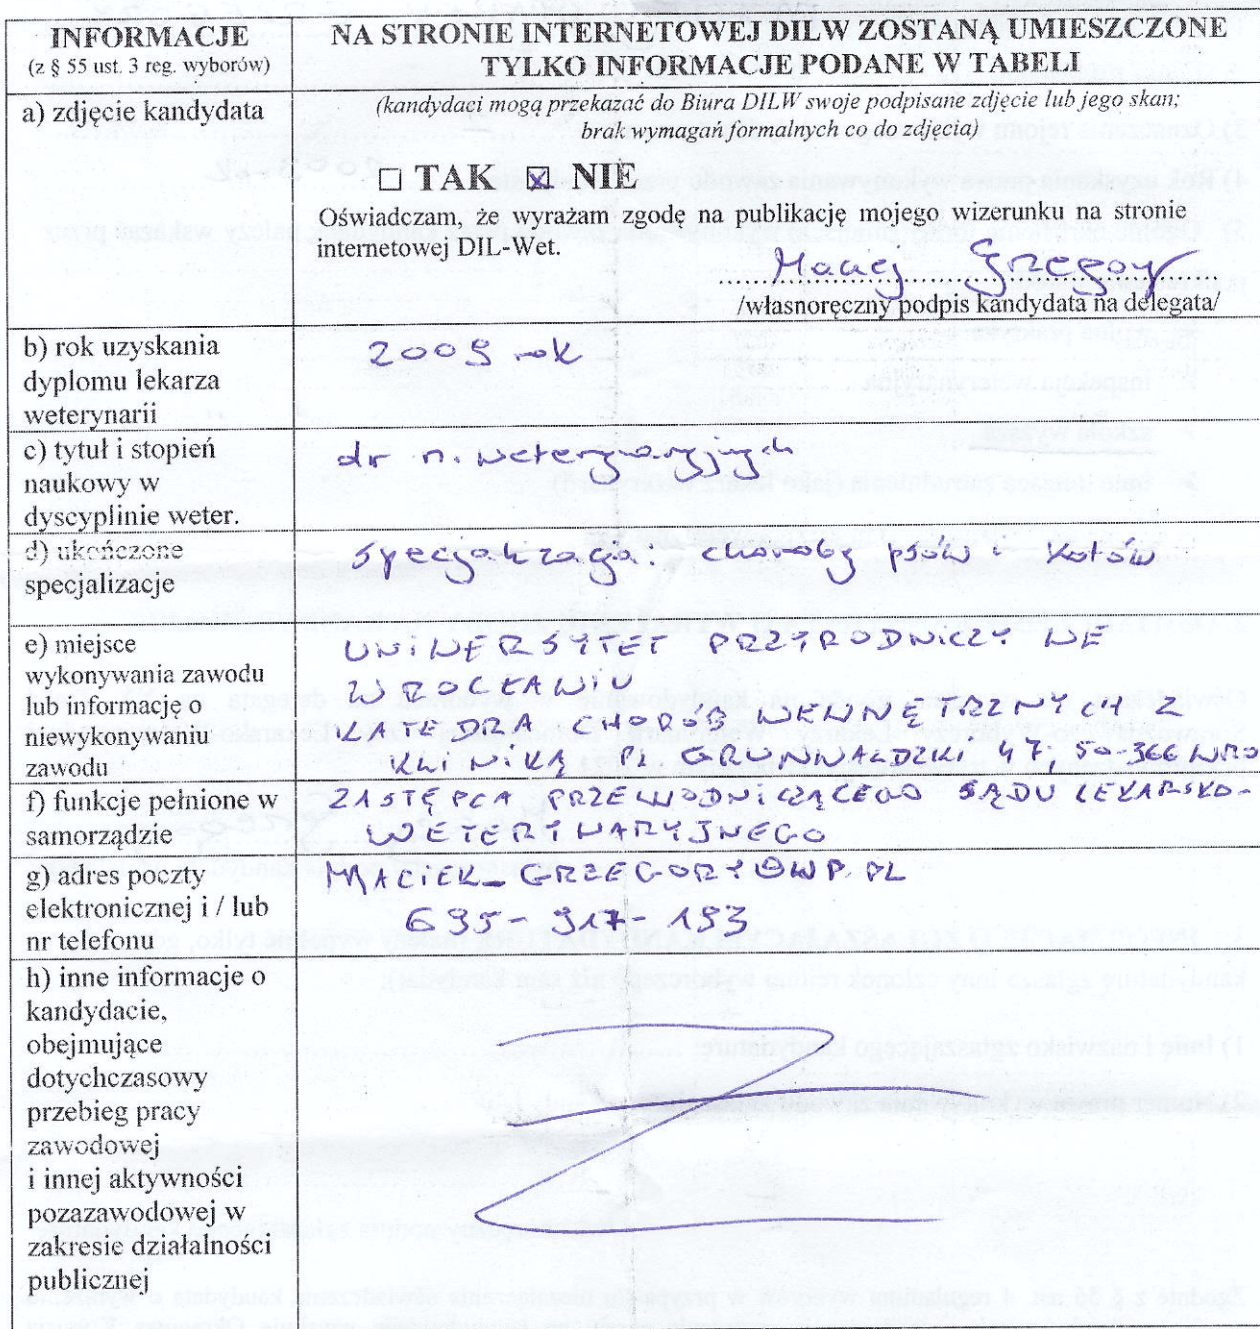 INFORMACJE
(z § 55 ust. 3 reg. wyborów)
NA STRONIE INTERNETOWEJ DILW ZOSTANĄ UMIESZCZONE
TYLKO INFORMACJE PODANE W TABELI
a) zdjęcie kandydata
(kandydaci mogą przekazać do Biura DILW swoje podpisane zdjęcie lub jego skan;
brak wymagań formalnych co do zdjęcia)
☐ TAK ☒ NIE
Oświadczam, że wyrażam zgodę na publikację mojego wizerunku na stronie
internetowej DIL-Wet.
Maciej Grzegory
/własnoręczny podpis kandydata na delegata/
b) rok uzyskania
dyplomu lekarza
weterynarii
rok
c) tytuł i stopień
naukowy w
dyscyplinie weter.
dr n. weterynaryjnych
d) ukończone
specjalizacje
specjalizacja: choroby psów i kotów
e) miejsce
wykonywania zawodu
lub informację o
niewykonywaniu
zawodu
UNIWERSYTET PRZYRODNICZY WE
WROCŁAWIU
KATEDRA CHORÓB WEWNĘTRZNYCH Z
KLINIKĄ PL GRUNWALDZKI 47, 50-366 WRO
f) funkcje pełnione w
samorządzie
ZASTĘPCA PRZEWODNICZĄCEGO SĄDU LEKARSKO-
WETERYNARYJNEGO
g) adres poczty
elektronicznej i / lub
nr telefonu
MACIEK_GRZEGORY@WP.PL
695-917-193
h) inne informacje o
kandydacie,
obejmujące
dotychczasowy
przebieg pracy
zawodowej
i innej aktywności
pozazawodowej w
zakresie działalności
publicznej